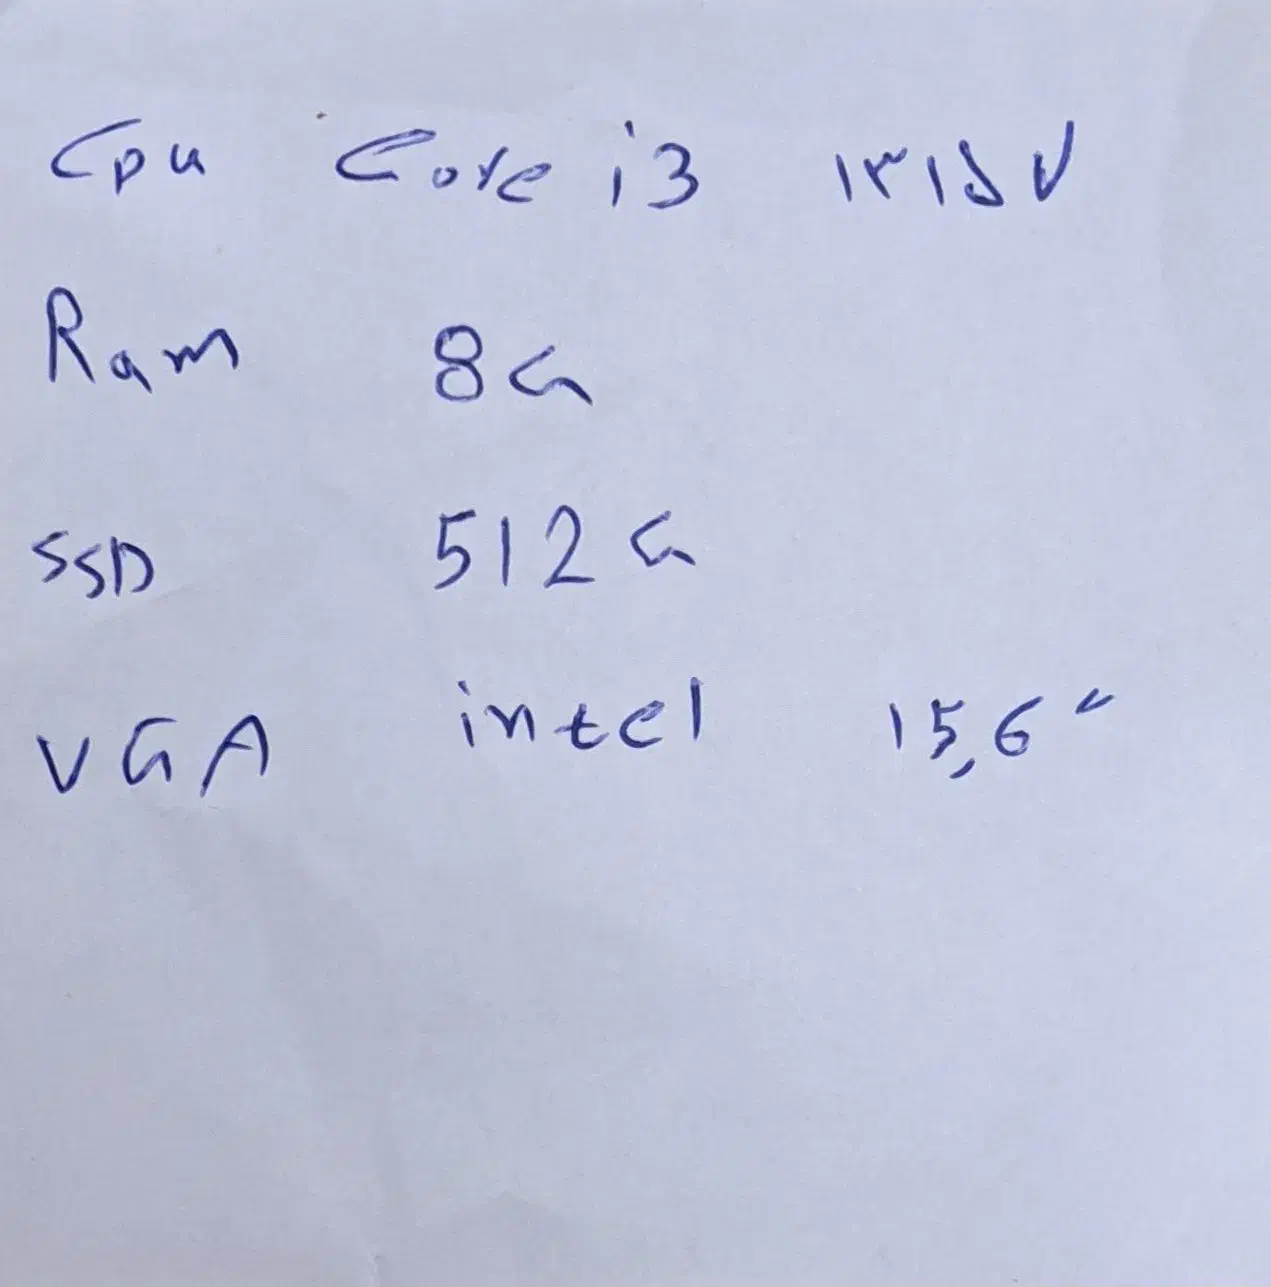 Cpu Core i3 ۱۳۱۵U
Ram 8G
SSD 512G
VGA intel 15,6"